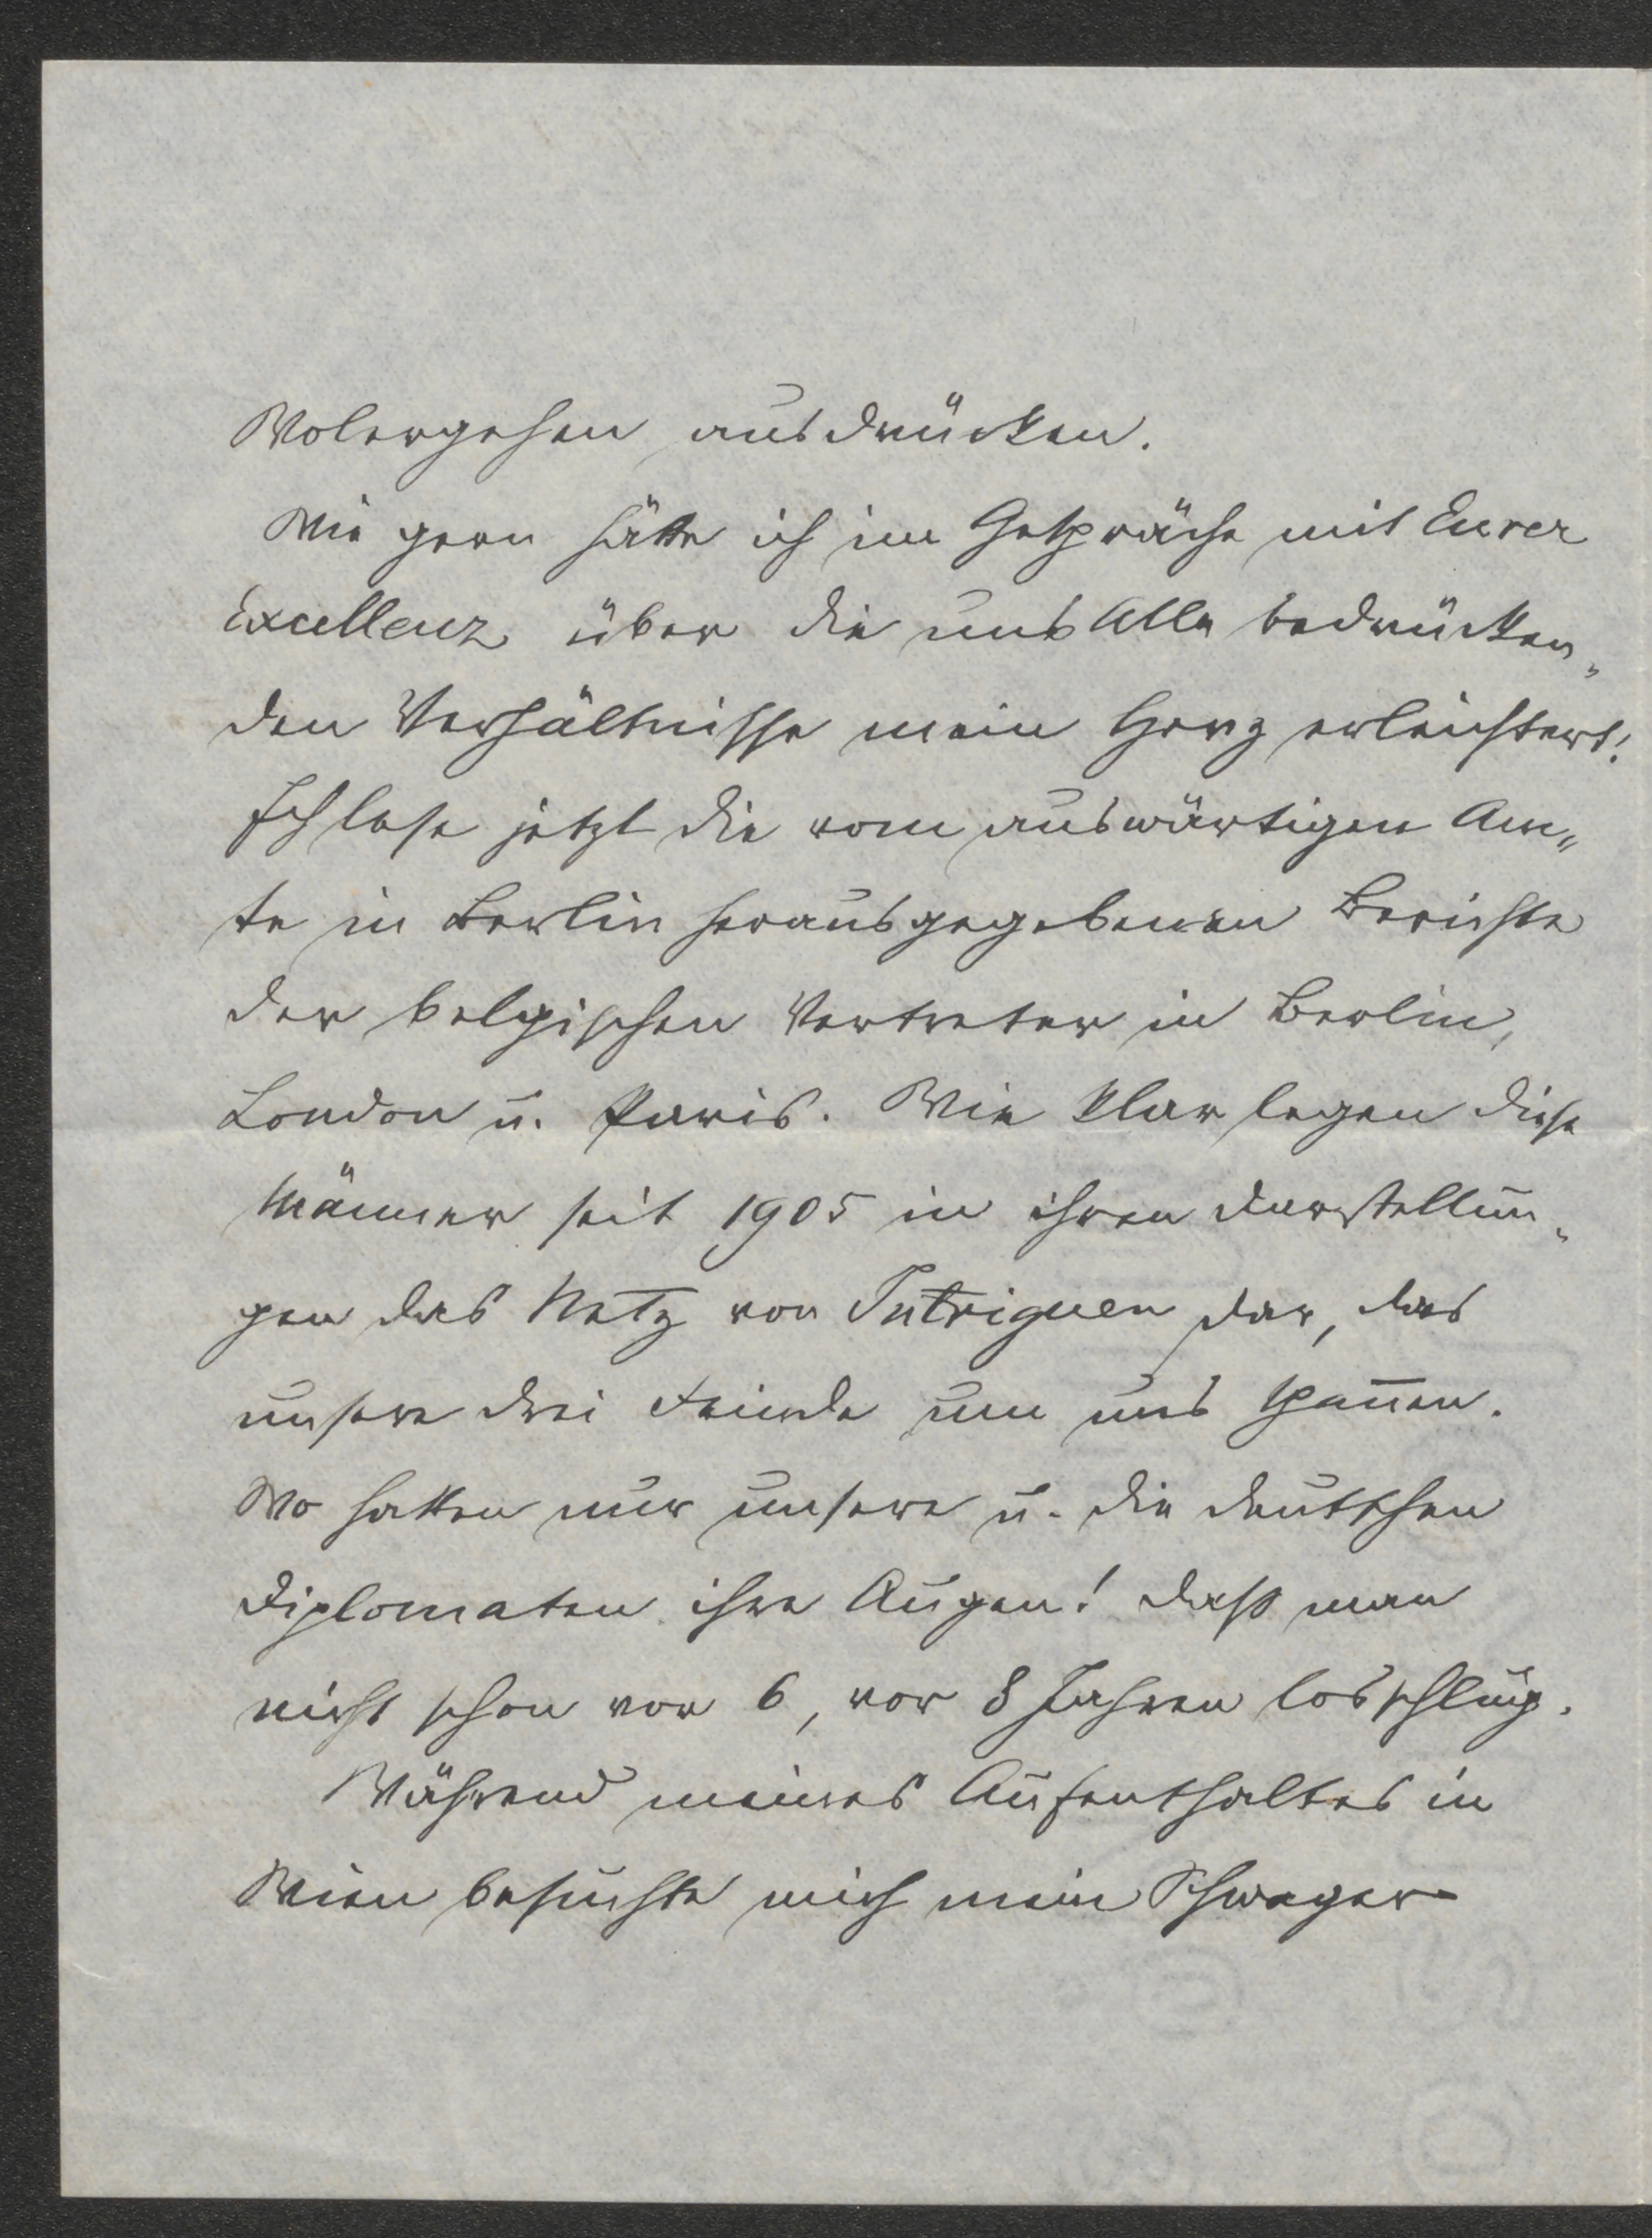 Wolergehen ausdrücken.
Wie gern hätte ich im Gespräche mit Eurer
Excellenz über die uns Alle bedrücken„
den Verhältnisse mein Herz erleichtert!
Ich lese jetzt die vom auswärtigen Am„
te in Berlin herausgegebenen Berichte
der belgischen Vertreter in Berlin,
London u. Paris. Wie klar legen diese
Männer seit 1905 in ihren Darstellun„
gen das Netz von Intriguen dar, das
unsere drei Feinde um uns spannen.
Wo hatten nur unsere u. die deutschen
Diplomaten ihre Augen! Daß man
nicht schon vor 6, vor 8 Jahren losschlug.
Während meines Aufenthaltes in
Wien besuchte mich mein Schwager